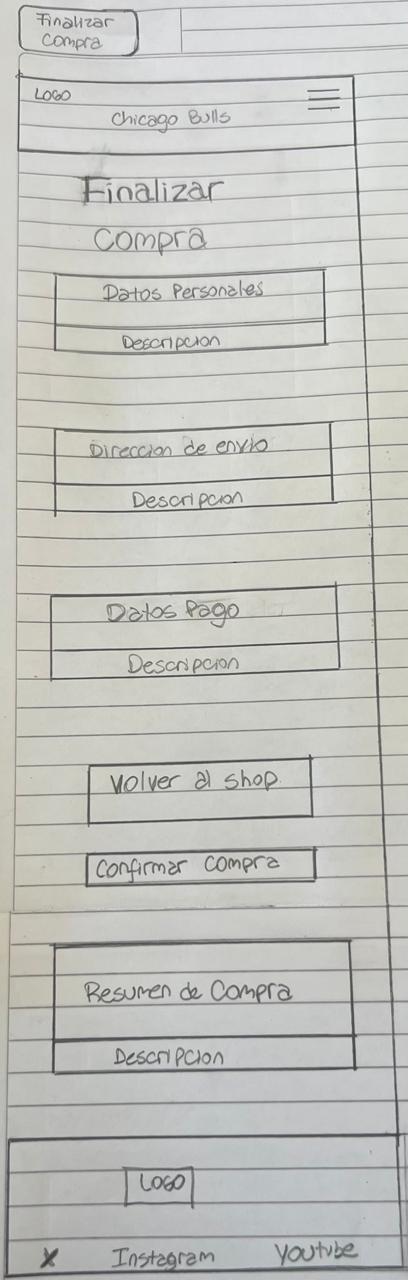 Finalizar
Compra
LOGO
Chicago Bulls
Finalizar
Compra
Datos Personales
Descripcion
Direccion de envio
Descripcion
Datos Pago
Descripcion
Volver al shop
Confirmar Compra
Resumen de Compra
Descripcion
LOGO
X Instagram Youtube